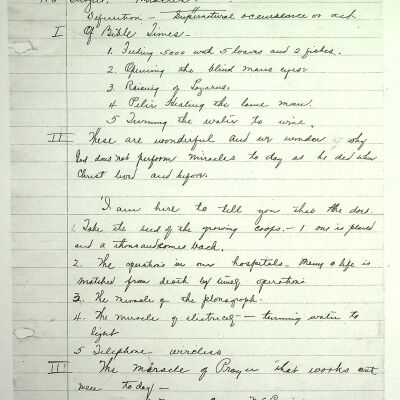 Definition - Supernatural occurrence or act.
I Of Bible Times -
1. Feeding 5000 with 5 loaves and 2 fishes.
2. Opening the blind mans eyes.
3. Raising of Lazarus.
4 Peter Healing the lame man.
5 Turning the water to wine.
II These are wonderful and we wonder why
God does not perform miracles to day as he did when
Christ lived and before.
I am here to tell you that He does.
1. Take the seed of the growing crops. - 1 one is planted
and a thousand comes back.
2. The operations in our hospitals. Many a life is
snatched from death by timely operations.
3. The miracle of the phonograph.
4. The miracle of electricity - turning water to
light
5 Telephone - wireless
III The miracle of Prayer that works out
mere to day/-